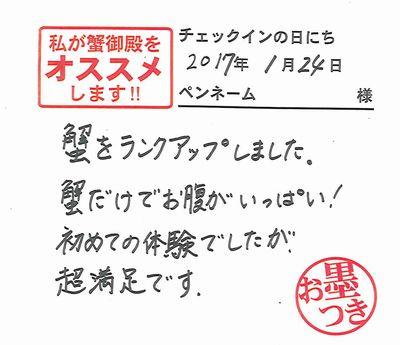 私が蟹御殿を
オススメ
します!!
チェックインの日にち
2017年 1月24日
ペンネーム 様
蟹をランクアップしました。
蟹だけでお腹がいっぱい!
初めての体験でしたが
超満足です.
お墨つき